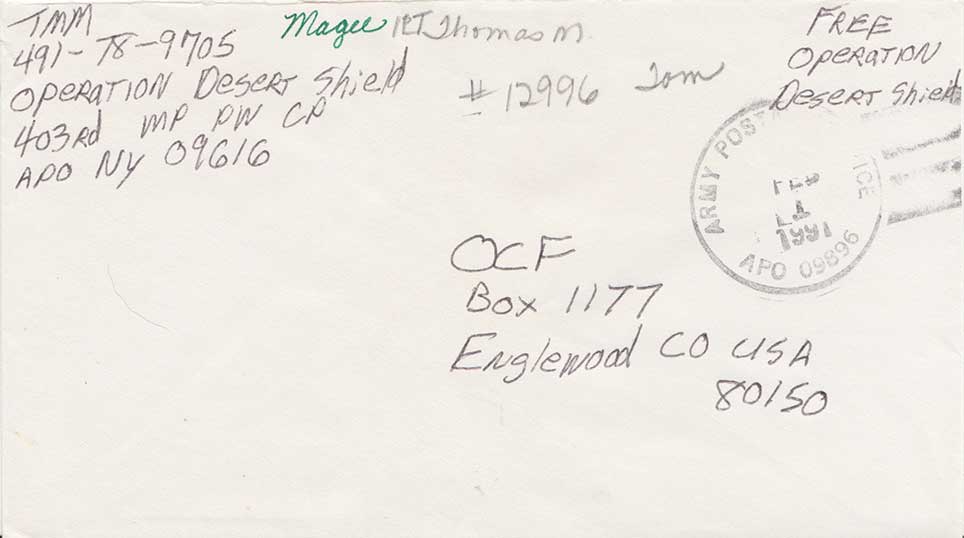 TMM
491-78-9705
OPERATION Desert Shield
403rd MP PW CP
APO NY 09616
Magee Thomas M.
#12996 Tom
FREE
OPERATION
Desert Shield
ARMY POSTA ICE
FEB
1991
APO 09896
OCF
Box 1177
Englewood CO USA
80150